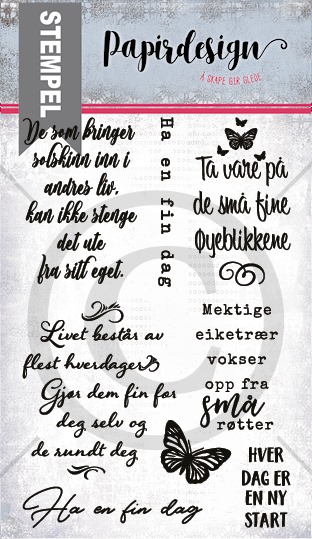 STEMPEL
Papirdesign
Å SKAPE GIR GLEDE
De som bringer
solskinn inn i
andres liv,
kan ikke stenge
det ute
fra sitt eget.
Ha en fin dag
Ta vare på
de små fine
Øyeblikkene
Mektige
eiketrær
vokser
opp fra
små
røtter
Livet består av
flest hverdager
Gjør dem fin for
deg selv og
de rundt deg
HVER
DAG ER
EN NY
START
Ha en fin dag
©